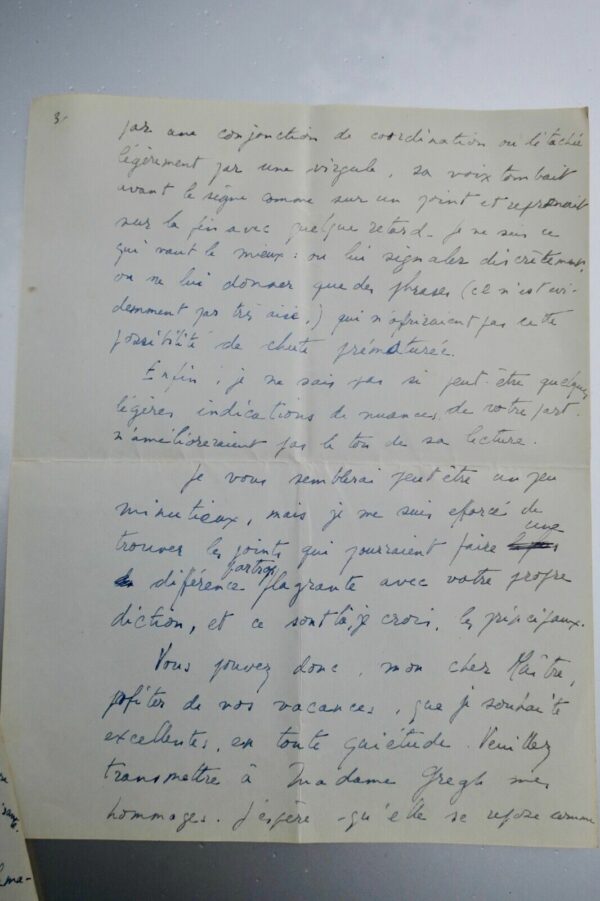 3.
par une conjonction de coordination ou détachée
légèrement par une virgule, sa voix tombait
avant le signe comme sur un point et reprenait
sur la fin avec quelque retard. Je ne sais ce
qui vaut le mieux : ou lui signaler discrètement,
ou ne lui donner que des phrases (ce n'est évi-
demment pas très aisé,) qui n'offriraient pas cette
possibilité de chute prématurée.
Enfin, je ne sais pas si peut-être quelques
légères indications de nuances, de votre part
n'amélioreraient pas le ton de sa lecture.
Je vous semblerai peut être un peu
minutieux, mais je me suis efforcé de
trouver les points qui pourraient faire une
différence parfois flagrante avec votre propre
diction, et ce sont là, je crois, les principaux.
Vous pouvez donc, mon cher Maître,
profiter de vos vacances, que je souhaite
excellentes, en toute quiétude. Veuillez
transmettre à Madame Gregh mes
hommages. J'espère qu'elle se repose comme
sans
ma-